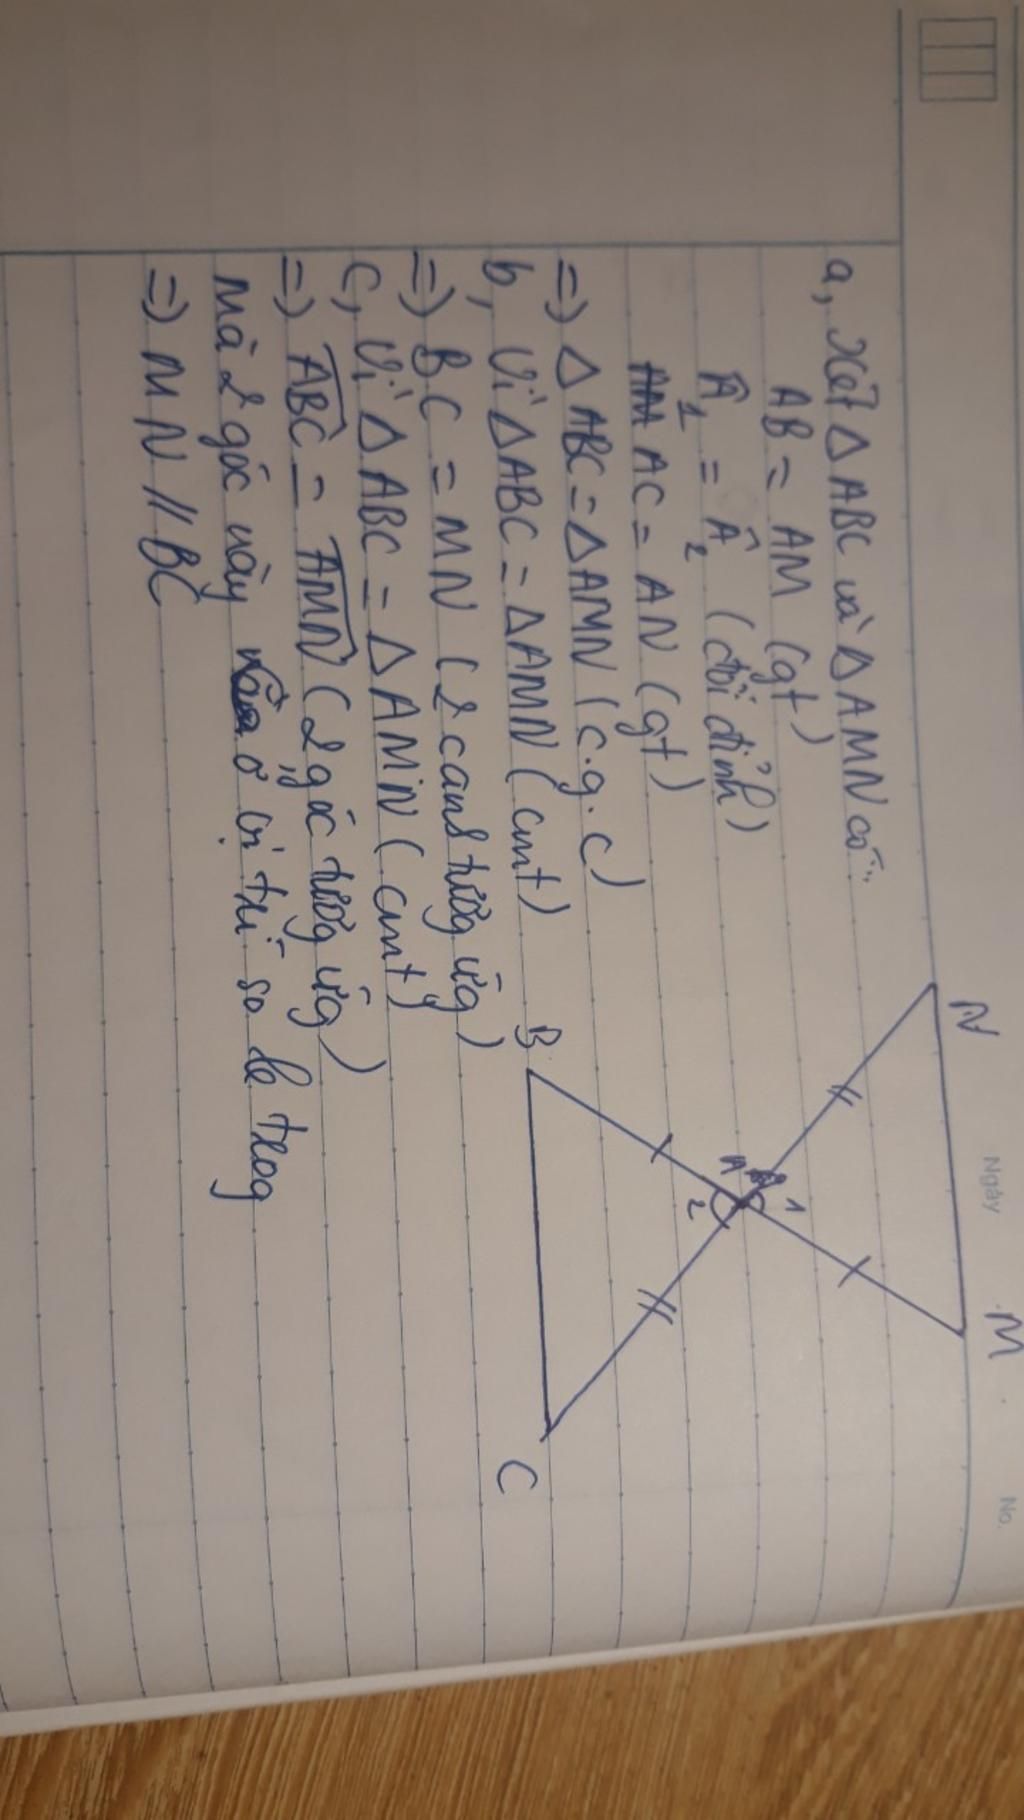 Ngày
No.
N
M
a, Xét △ ABC và △ AMN có:
AB = AM (gt)
Â₁ = Â₂ (đối đỉnh)
AC = AN (gt)
=> △ ABC = △ AMN (c.g.c)
b, Vì △ ABC = △ AMN (cmt)
=> BC = MN (2 cạnh tương ứng)
c, Vì △ ABC = △ AMN (cmt)
=> ABC = AMN (2 góc tương ứng)
mà 2 góc này ở vị trí so le trog
=> MN // BC
A
1
2
B
C